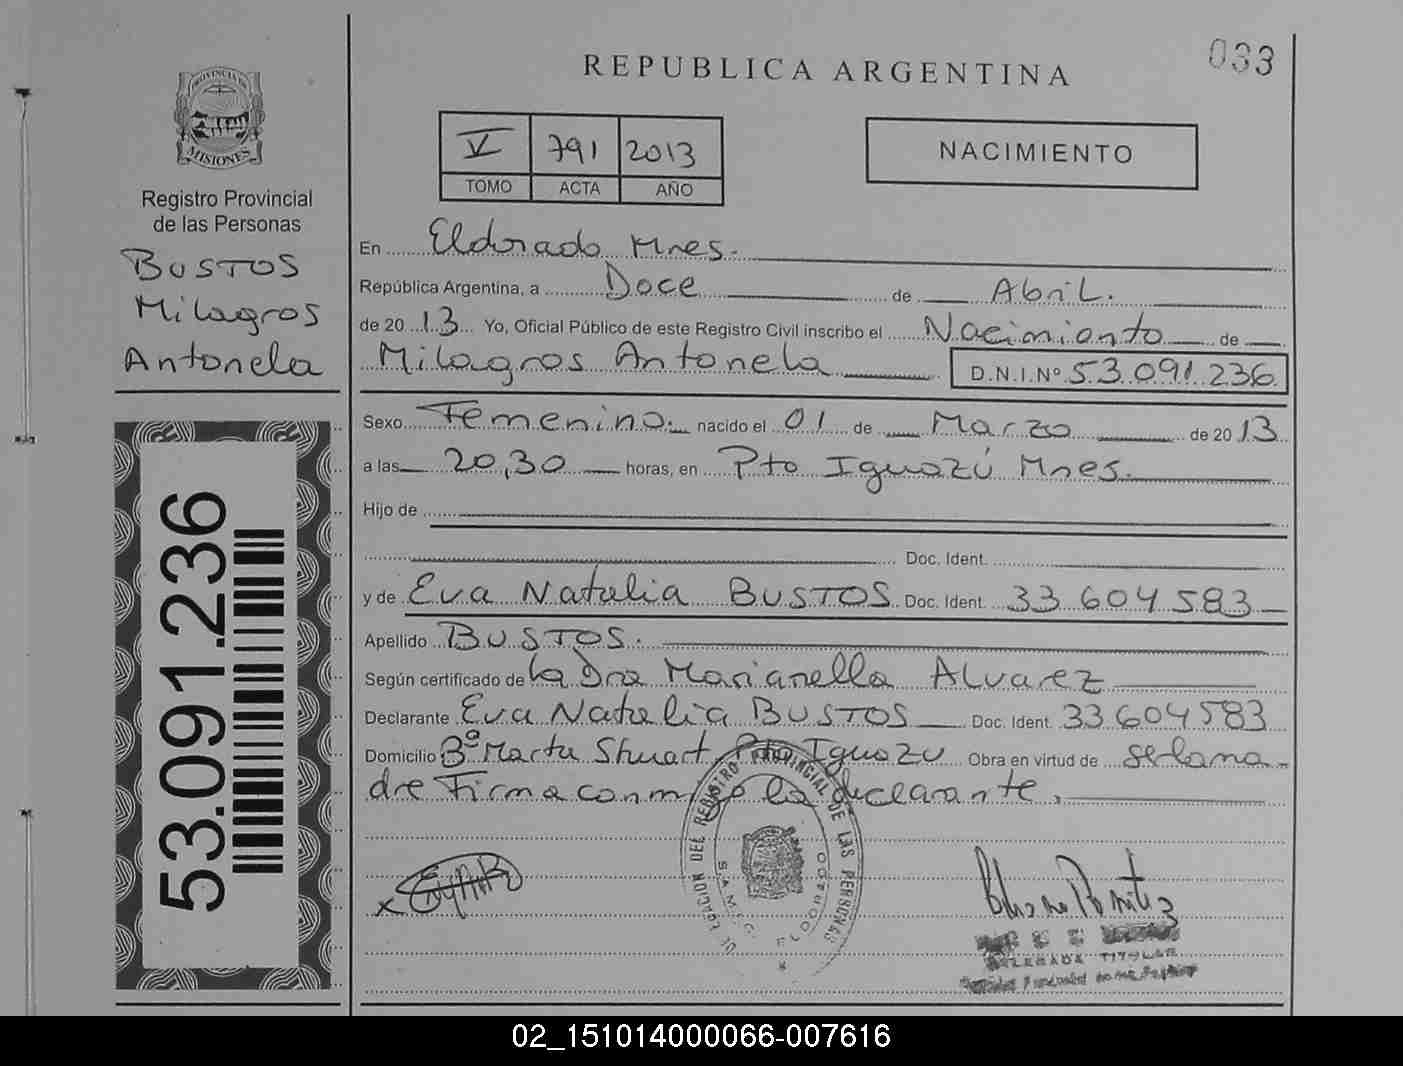 REPUBLICA ARGENTINA
033
PROVINCIA DE
MISIONES
Registro Provincial
de las Personas
BUSTOS
Milagros
Antonela
53.091.236
V 791 2013
TOMO ACTA AÑO
NACIMIENTO
En Eldorado Mnes.
República Argentina, a Doce de Abril.
de 2013 Yo, Oficial Público de este Registro Civil inscribo el Nacimianto de
Milagros Antonela D.N.I.Nº 53.091.236
Sexo Femenino. nacido el 01 de Marzo de 2013
a las 20,30 horas, en Pto Iguazú Mnes.
Hijo de
Doc. Ident.
y de Eva Natalia BUSTOS Doc. Ident. 33 604 583
Apellido BUSTOS.
Según certificado de la Dra Marianella Alvarez
Declarante Eva Natalia BUSTOS Doc. Ident. 33 604 583
Domicilio Bº Marta Stuart, Pto Iguazu Obra en virtud de ser la ma-
dre Firma conmigo la declarante.
DELEGACION DEL REGISTRO PROVINCIAL DE LAS PERSONAS
ELDORADO
DELEGADA TITULAR
02_151014000066-007616